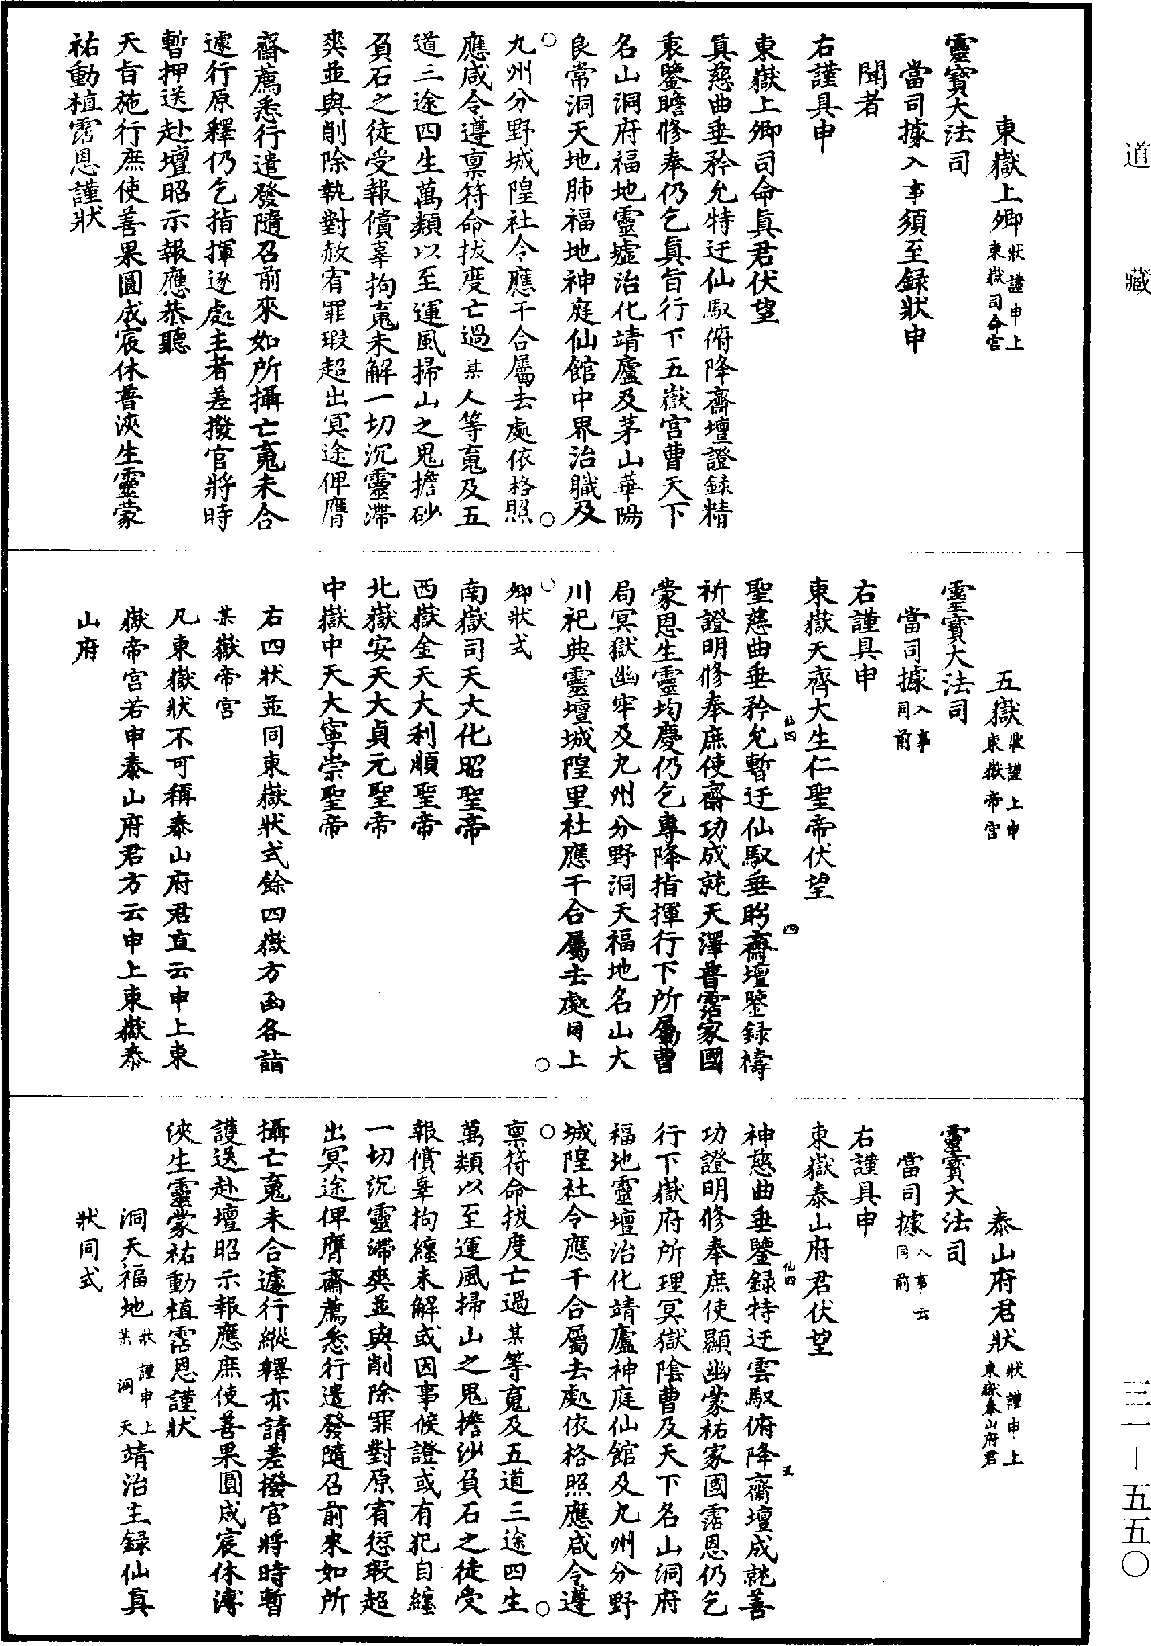 道藏
三一—五五〇
東嶽上卿狀謹申上東嶽司命宮
靈寶大法司
當司據入事須至録狀申
聞者
右謹具申
東嶽上卿司命真君伏望
真慈曲垂矜允特迂仙馭俯降齋壇證録精
衷鑒瞻修奉仍乞真旨行下五嶽宮曹天下
名山洞府福地靈墟治化靖廬及茅山華陽
良常洞天地肺福地神庭仙館中界治職及
九州分野城隍社令應干合屬去處依格照
應咸令遵禀符命拔度亡過某人等䰟及五
道三途四生萬類以至運風掃山之鬼擔砂
負石之徒受報償辜拘䰟未解一切沉靈滯
爽並與削除執對赦宥罪瑕超出冥途俾膺
齋薦悉行遣發隨召前來如所攝亡䰟未合
遽行原釋仍乞指揮逐處主者差撥官將時
暫押送赴壇昭示報應恭聽
天旨施行庶使善果圓成宸休普浹生靈蒙
祐動植霑恩謹狀
五嶽狀謹上申東嶽帝宮
靈寶大法司
當司據入事同前
右謹具申
東嶽天齊大生仁聖帝伏望
聖慈曲垂矜允暫迂仙馭垂盼齋壇鑒録禱
祈證明修奉庶使齋功成就天澤普霑家國
蒙恩生靈均慶仍乞專降指揮行下所屬曹
局冥獄幽牢及九州分野洞天福地名山大
川祀典靈壇城隍里社應干合屬去處同上
卿狀式
南嶽司天大化昭聖帝
西嶽金天大利順聖帝
北嶽安天大貞元聖帝
中嶽中天大寧崇聖帝
右四狀並同東嶽狀式餘四嶽方函各詣
某嶽帝宮
凡東嶽狀不可稱泰山府君直云申上東
嶽帝宮若申泰山府君方云申上東嶽泰
山府
泰山府君狀狀謹申上東嶽泰山府君
靈寶大法司
當司據入事云同前
右謹具申
東嶽泰山府君伏望
神慈曲垂鑒録特迂雲馭俯降齋壇成就善
功證明修奉庶使顯幽蒙祐家國霑恩仍乞
行下嶽府所理冥獄陰曹及天下名山洞府
福地靈壇治化靖廬神庭仙館及九州分野
城隍社令應干合屬去處依格照應咸令遵
禀符命拔度亡過某等䰟及五道三途四生
萬類以至運風掃山之鬼擔沙負石之徒受
報償辜拘纏未解或因事候證或有犯自纏
一切沉靈滯爽並與削除罪對原宥愆瑕超
出冥途俾膺齋薦悉行遣發隨召前來如所
攝亡䰟未合遽行縱釋亦請差撥官將時暫
護送赴壇昭示報應庶使善果圓成宸休溥
浹生靈蒙祐動植霑恩謹狀
洞天福地狀謹申上某洞天靖治主録仙真
狀同式